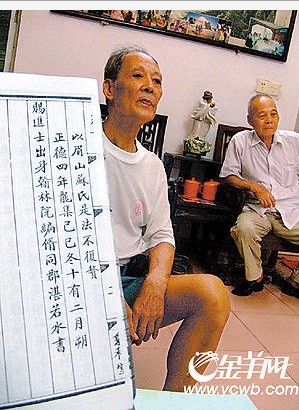 以眉山蘇氏是法不復贅
正德四年龍集己巳冬十有二月朔
賜進士出身翰林院編脩同郡湛若水書
金羊网
www.ycwb.com